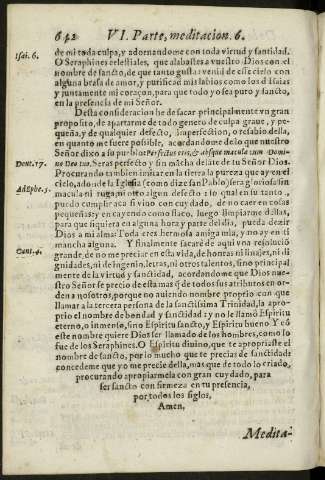 642 VI. Parte, meditacion. 6.
Isai. 6.
de mi toda culpa, y adornandome con toda virtud y santidad.
O Seraphines celestiales, que alabastes a vuestro Dios con el
nombre de sancto, de que tanto gusta: venid de esse cielo con
alguna brasa de amor, y purificad mis labios como los de Isaias
y juntamente mi coraçon, para que todo yo sea puro y sancto,
en la presencia de mi Señor.
Desta consideracion he de sacar principalmente vn gran
proposito, de apartarme de todo genero de culpa graue, y pe-
queña, y de qualquier defecto, imperfection, o resabio della,
en quanto me fuere possible, acordandome de lo que nuestro
Deut. 17.
Señor dixo a su pueblo: Perfectus eris, & absque macula cum Domi-
no Deo tuo. Seras perfecto y sin mácha delãte de tu Señor Dios.
Procurando tambien imitar en la tierra la pureza que ay en el
Ad Ephe. 5.
cielo, adonde la Iglesia (como dize san Pablo) sera gloriosa sin
macula ni ruga, ni otro algun defecto: lo qual en su tanto,
puedo cumplir aca si viuo con cuydado, de no caer en cosas
pequeñas: y en cayendo como flaco, luego limpiarme dellas,
para que siquiera en alguna hora y parte del dia, pueda dezir
Cant. 4.
Dios a mi alma: Toda eres hermosa amiga mia, y no ay en ti
mancha alguna. Y finalmente sacaré de aqui vna resoluciõ
grande, de no me preciar en esta vida, de honras ni linajes, ni di
gnidades, ni de ingenio, letras, ni otros talentos, sino principal
mente de la virtud y sanctidad, acordandome que Dios nue-
stro Señor se precio de esta mas q̃ de todos sus atributos en or-
den a nosotros, porque no auiendo nombre proprio con que
llamar a la tercera persona de la sanctissima Trinidad, la apro-
prio el nombre de bondad y sanctidad: y no le llamó Espiritu
eterno, o inmenso, sino Espiritu sancto, y Espiritu bueno. Y cõ
este nombre quiere Dios ser llamado de los hombres, como lo
fue de los Seraphines. O Espiritu diuino, que te apropriaste el
nombre de sancto, por lo mucho que te precias de sanctidad:
concedeme que yo me precie della, mas que de todo lo criado,
procurando apropiarmela con gran cuydado, para
ser sancto con firmeza en tu presencia,
por todos los siglos,
Amen,
Medita-